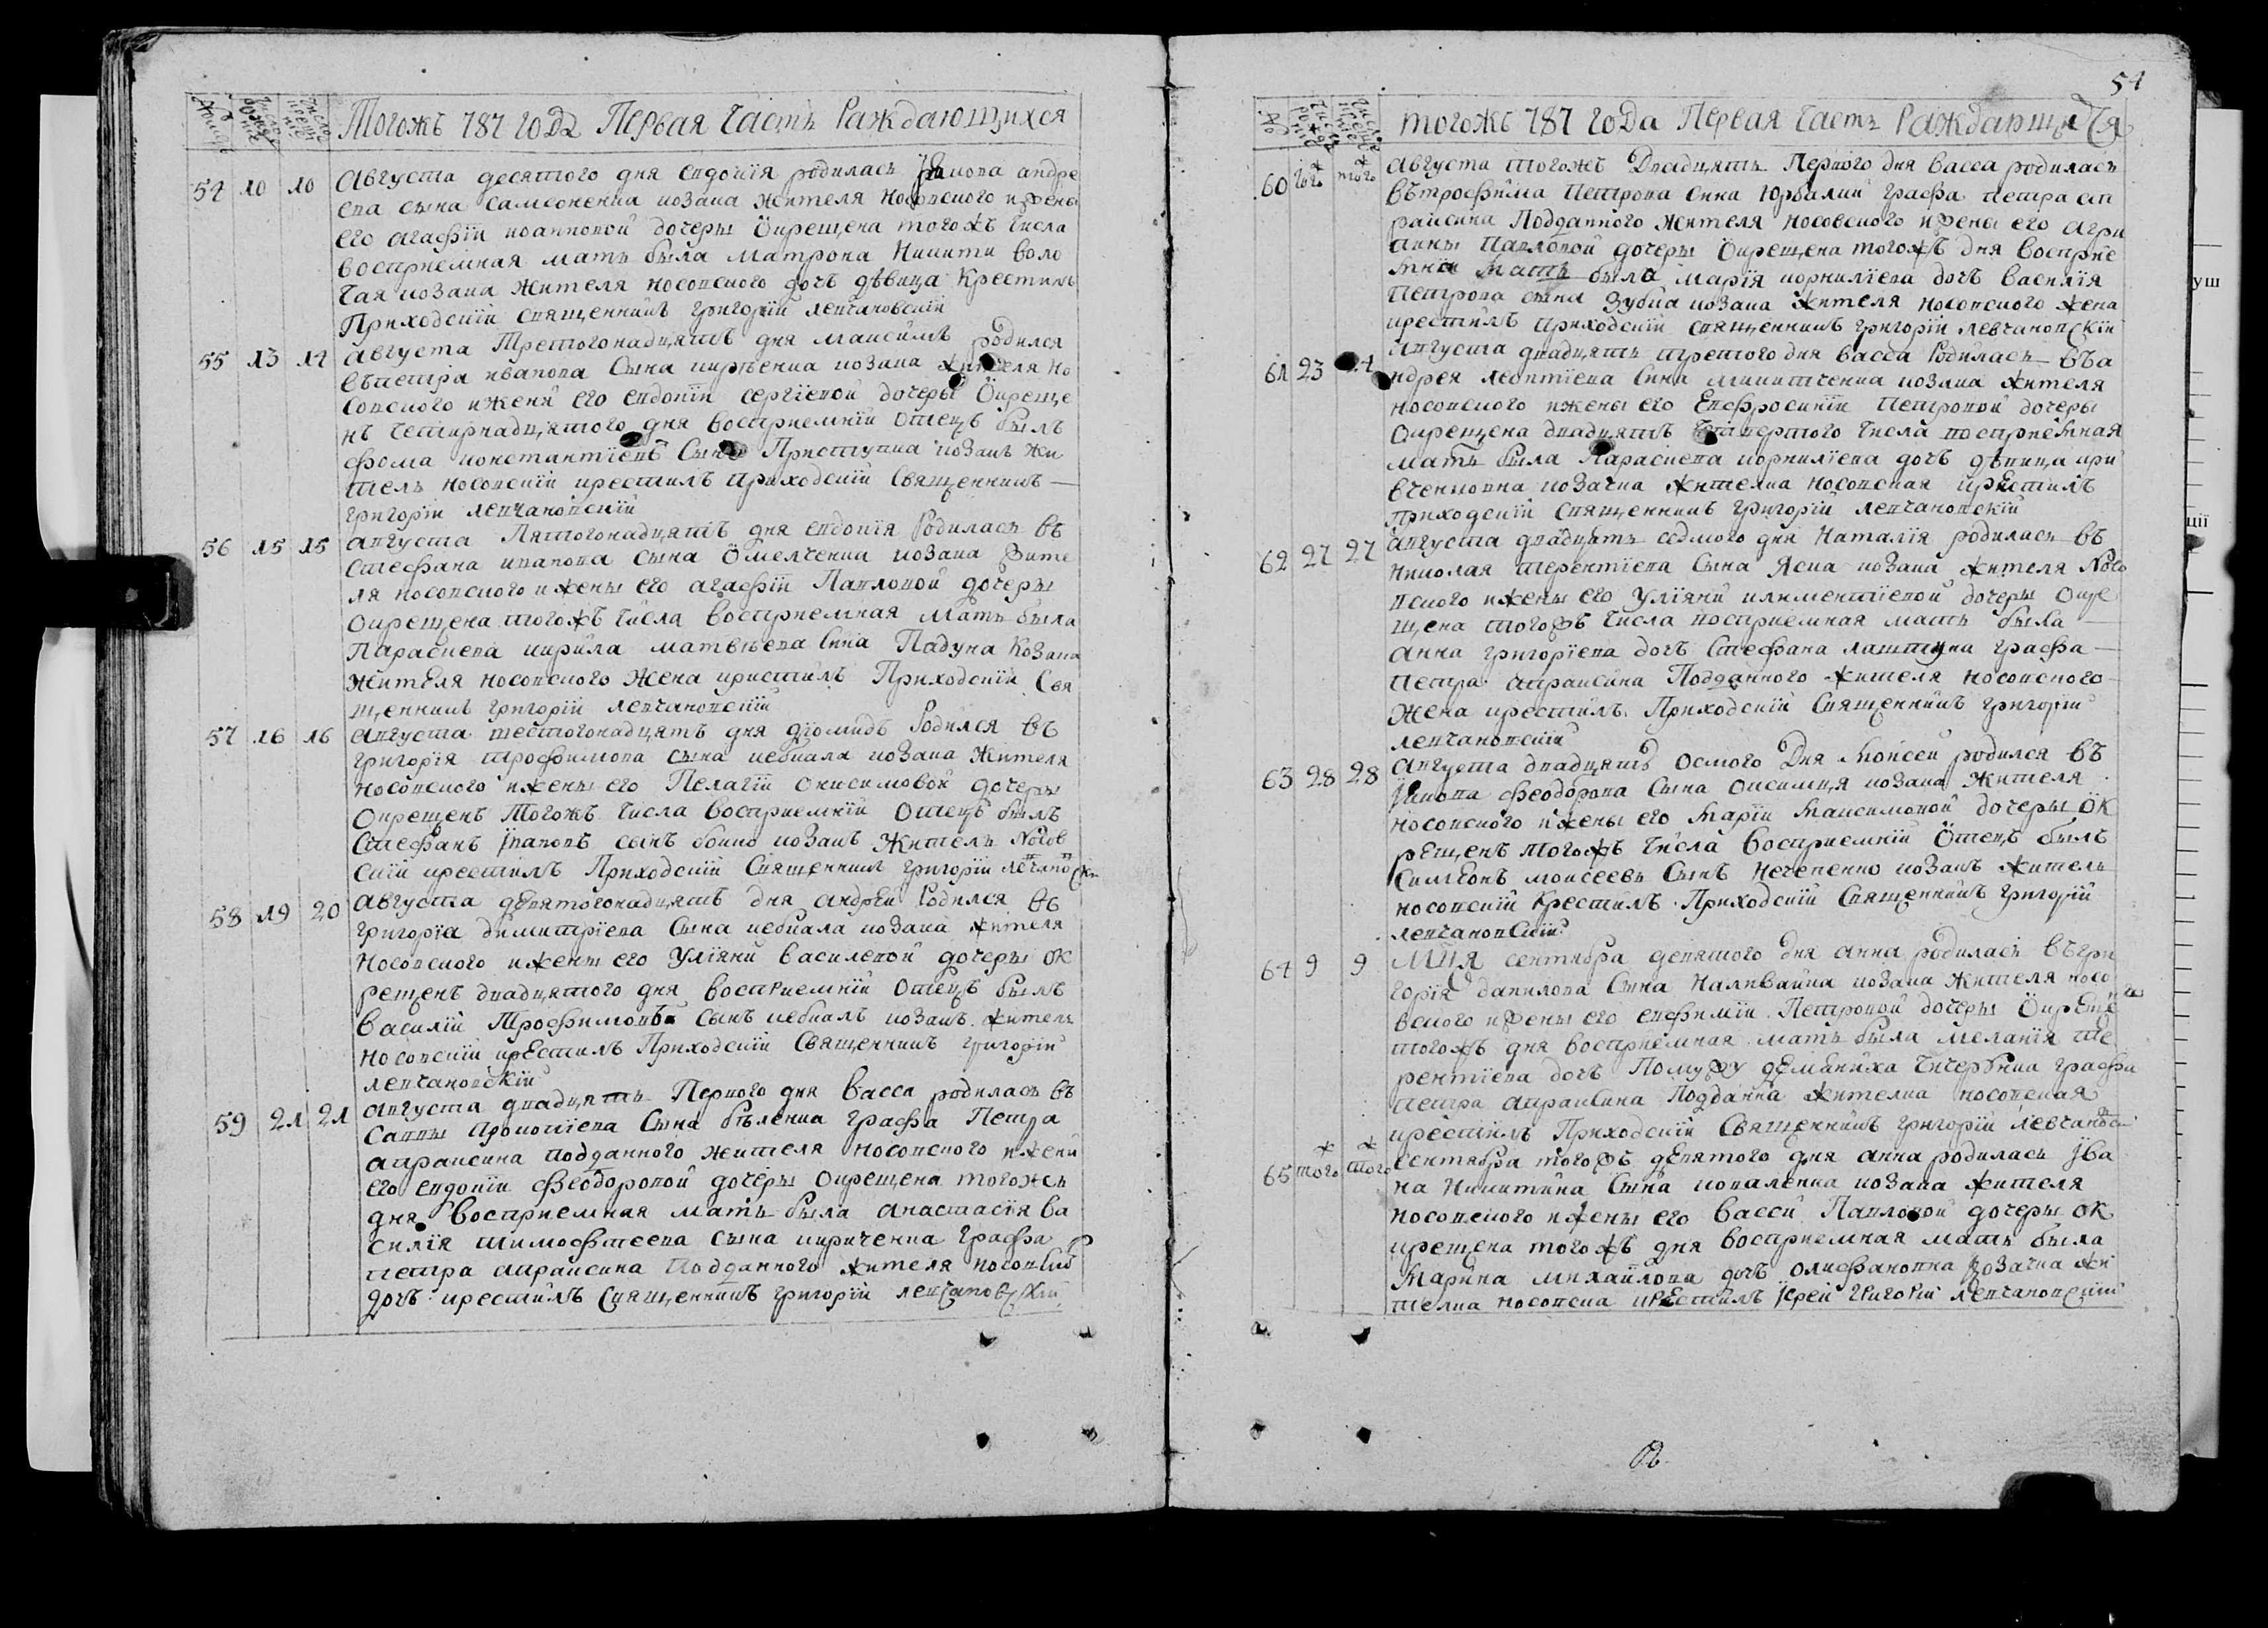 Тогожъ 787 года Первая Часть Раждающихся
54 10 10
Августа десятого дня евдокія родилась якова андре
ева сына самсоненка козака жителя носовского и жены
его агафіи иоанновой дочеры Окрещена тогожъ числа
восприемная мать была матрона Никити воло
козака жителя носовского дочъ дѣвица Крестилъ
Приходскій священникъ григорій левчановскій
55 13 14
Августа Третогонадцять дня максимъ родился
въ петра иванова Сына козака жителя но
совского и жени его евдокіи сергіевой дочеры Окреще
нъ четирнадцятого дня восприемній отецъ былъ
фома константіевъ Сынъ Приступка козакъ жи
тель носовскій крестилъ приходскій Священникъ
григорій левчановскій
56 15 15
августа Пятогонадцять дня евдокія Родилась въ
стефана иванова сына Омелченка козака жите
ля носовского и жены его агафіи Павловой дочеры
Окрещена тогожъ числа восприемная мать была
Параскева кирила матвѣева Сина Падуна Козака
жителя носовского Жена кристилъ Приходскій Свя
щенникъ григорій левчановскій
57 16 16
августа шестогонадцять дня діомидъ Родился въ
григорія трофимова сына кебкала козака жителя
носовского и жены его Пелагіи онисимовой дочеры
Окрещенъ Тогожъ числа восприемній Отецъ былъ
Стефанъ Ивановъ сынъ бойко козакъ Житель Носов
скій крестилъ Приходскій Священникъ григорій левчановскій
58 19 20
августа девятогонадцять дня андрей Родился въ
григорія димитріева Сына кебкала козака жителя
носовского и жены его Уліяни василевой дочеры ок
рещенъ двадцятого дня восприемній отецъ былъ
василій Трофимовъ сынъ кебкалъ козакъ житель
носовскій крестилъ Приходскій Священникъ григорій
левчановскій
59 21 21
августа двадцять Первого дня васса родилась въ
Саввы прокопіева Сына бѣленка графа Петра
апраксина подданного жителя носовского и жени
его евдокіи феодоровой дочеры окрещена тогожъ
дня восприемная мать была анастасія ва
силія тимофтеева сына кириченка графа
петра апраксина подданного жителя носовског
дочъ крестилъ Священникъ григорій левчановскій
54
тогожъ 787 года Первая Часть Раждающися
60 того ж того ж
августа тогожъ Двадцять Первого дня васса родилась
въ трофима петрова сина графа петра ап
раксина Подданного жителя носовского и жены его агри
пины Павловой дочеры Окрещена тогожъ дня восприе
мная мать была марія корниліева дочъ василія
петрова сына зубка козака жителя носовского жена
крестилъ приходскій священникъ григорій левчановскій
61 23 24
августа двадцять третого дня васса Родилась въ а
ндрея леонтіева Сина козака жителя
носовского и жены его Евфросиніи петровой дочеры
Окрещена двадцять четвертого числа восприемная
мать была Параскева корниліева дочъ дѣвица кри
вченковна козачка жителка носовская крестилъ
приходскій священникъ григорій левчановскій
62 27 27
августа двадцять седмого дня Наталія родилась въ
николая терентіева Сына Яска козака жителя Носо
вского и жены его Уліяни климентіевой дочеры окре
щена тогожъ числа восприемная мать была
анна григоріева дочъ Стефана лаштуна графа
петра апраксина Подданного жителя носовского
Жена крестилъ Приходскій Священникъ григорій
левчановскій
63 28 28
августа двадцять осмого Дня моисей родился въ
Якова феодорова Сына козака жителя
носовского и жены его маріи максимовой дочеры Ок
рещенъ тогожъ числа восприемній Отецъ былъ
Симеонъ моисеевъ Сынъ нечепенко козакъ житель
носовскій Крестилъ Приходскій Священникъ григорій
левчановскій
64 9 9
Мця сентября девятого дня анна родилась въ гри
горія данилова Сына Наливайка козака жителя носо
вского и жены его евфиміи Петровой дочеры Окреще на
тогожъ дня восприемная мать была меланія те
рентіева дочъ графа
петра апраксина Поддана жителка носовская
крестилъ Приходскій Священникъ григорій левчановскі
65 того ж того ж
сентября тогожъ девятого дня анна родилась Ива
на Никитина Сына коваленка козака жителя
носовского и жены его васси Павловой дочеры ок
крещена тогожъ дня восприемная мать была
марина михайлова дочъ олифановна козачка жи
телка носовска крестилъ Іерей григорій левчановскій